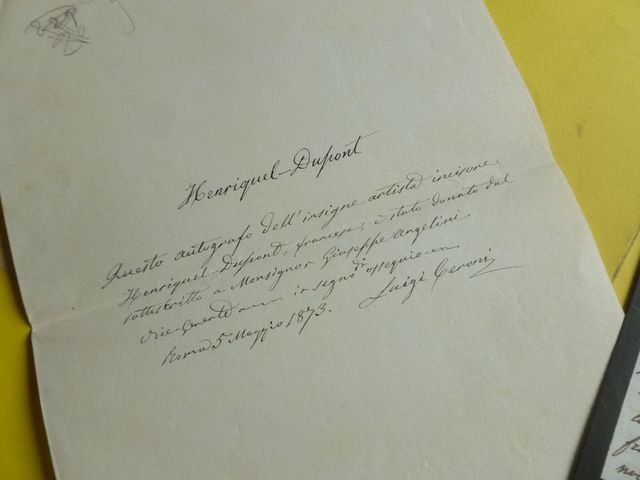 Henriquel-Dupont
Questo autografo dell'insigne artista incisore
Henriquel-Dupont, francese, è stato donato dal
sottoscritto a Monsignor Giuseppe Angelini
Vice-Gerente in segno di ossequio
Roma 5 Maggio 1873. Luigi Ceroni